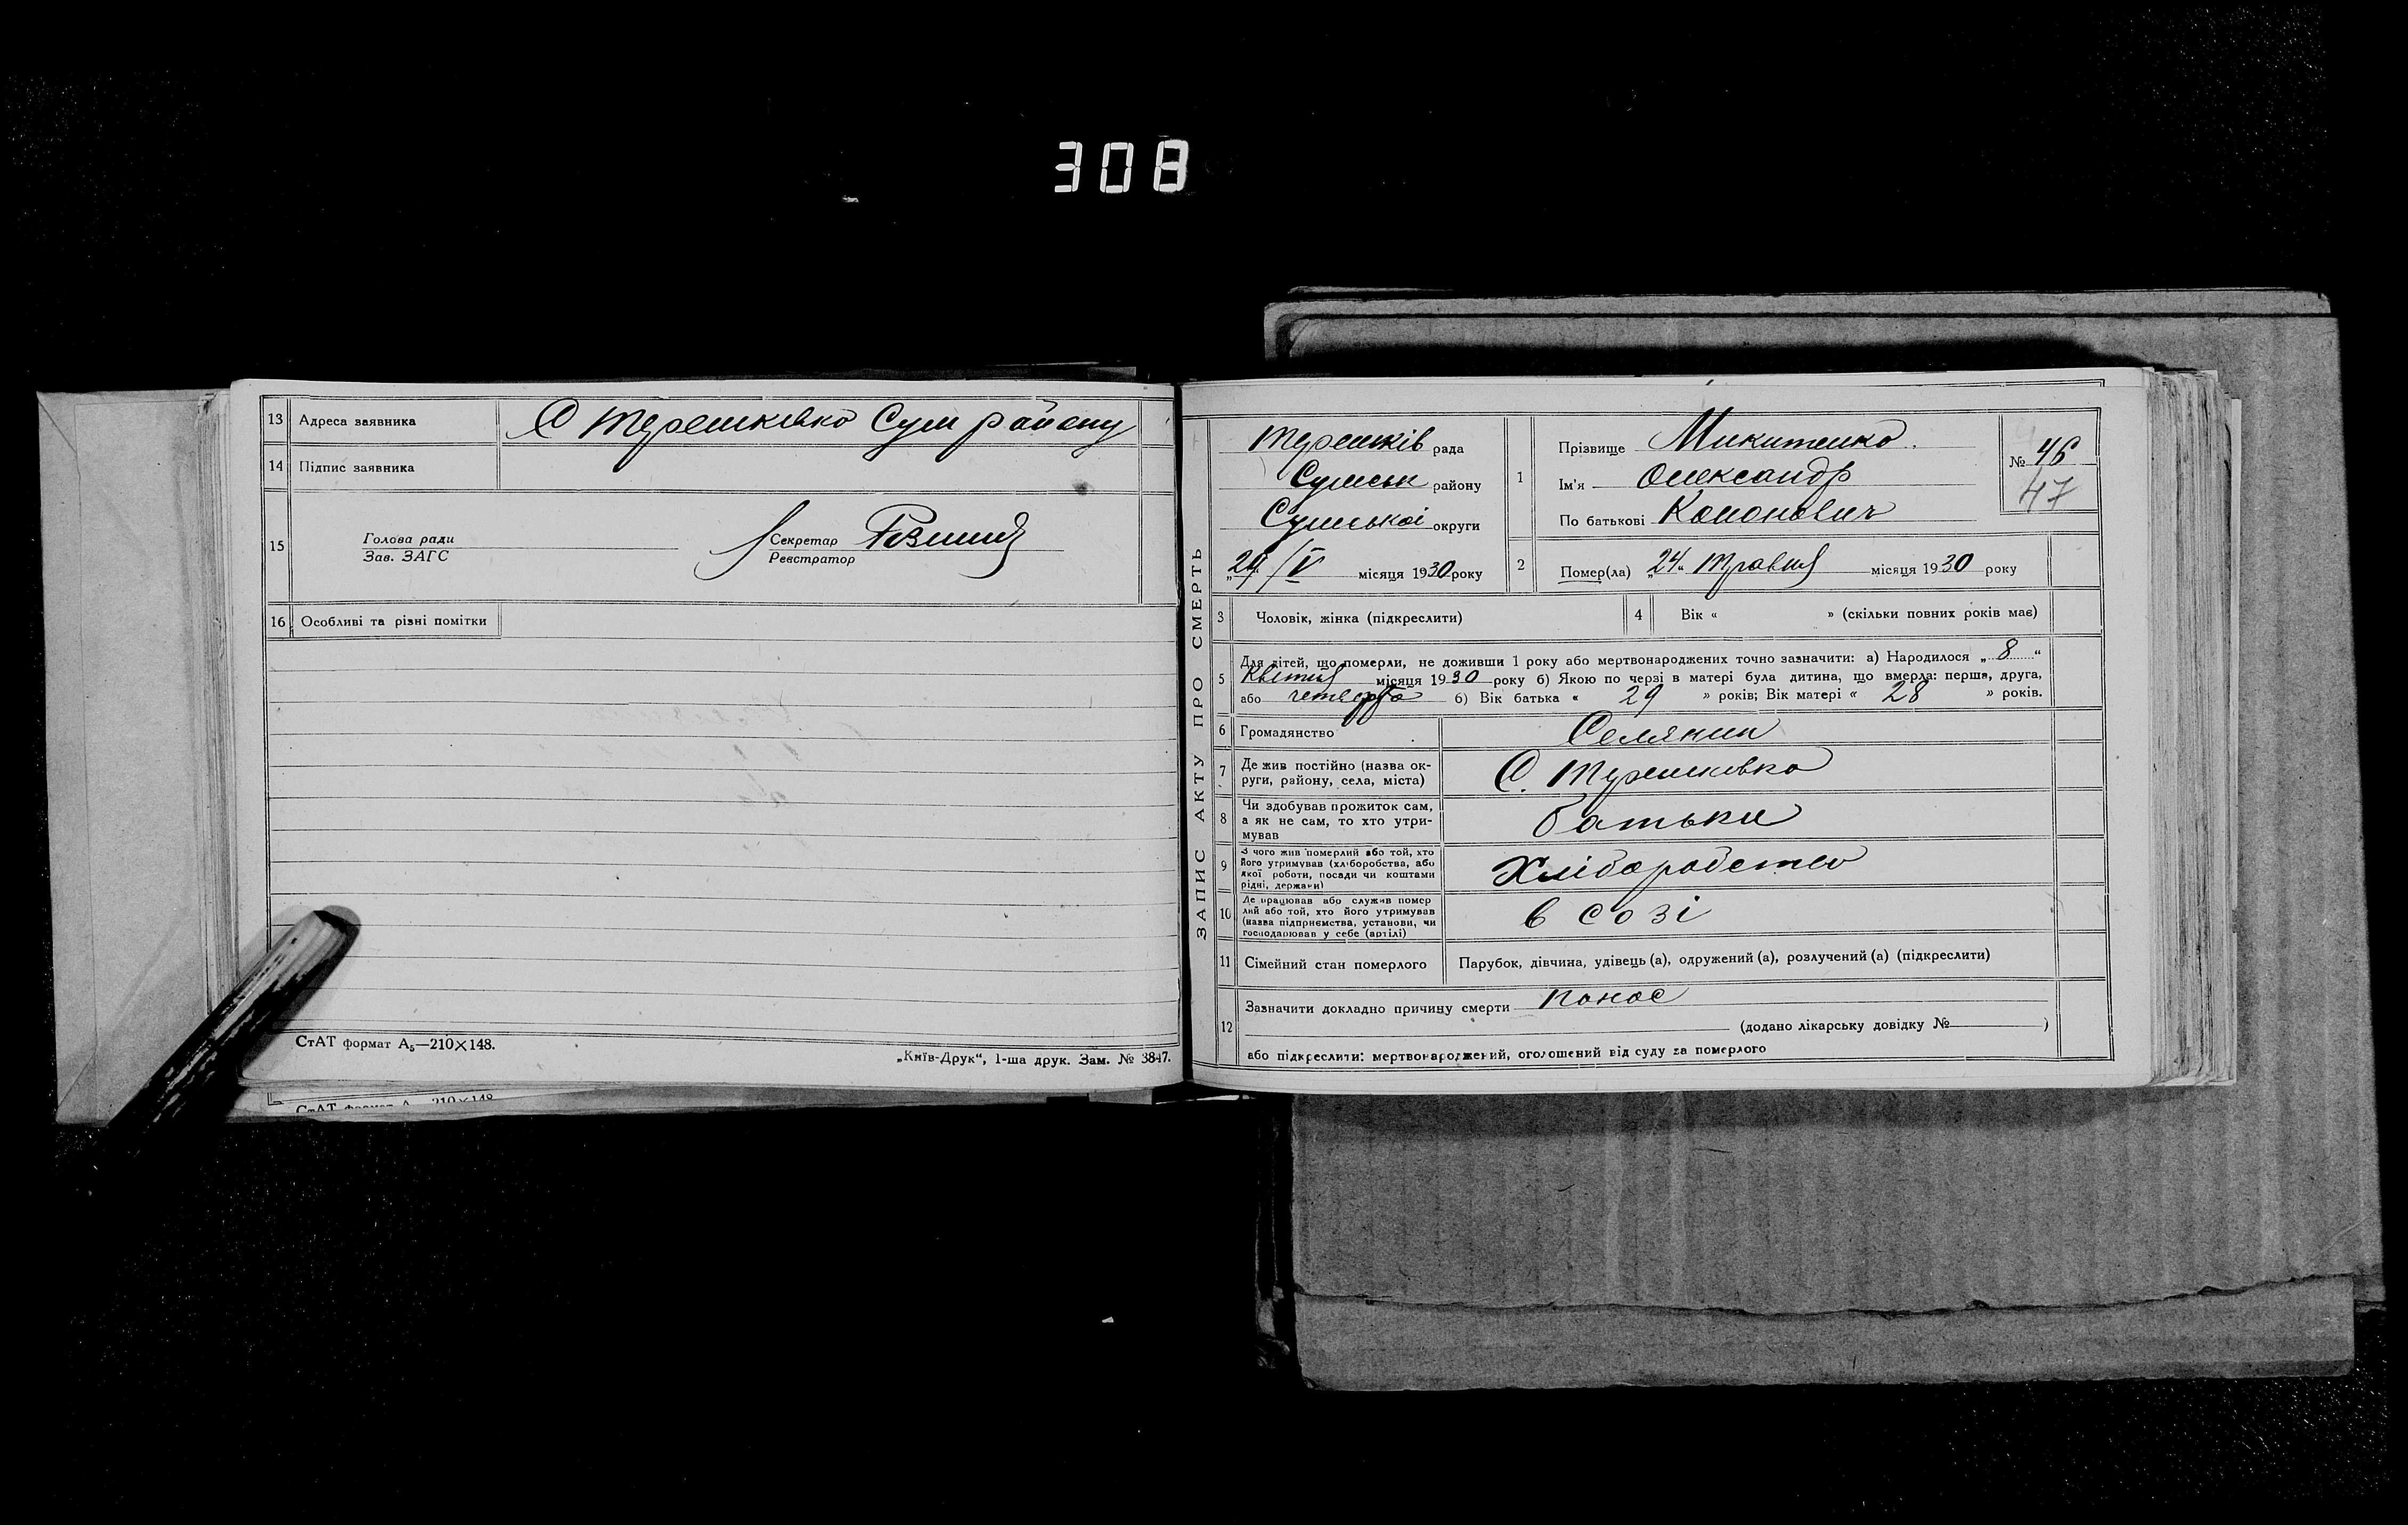 308
13 Адреса заявника С Терешковка Сум району
14 Підпис заявника
15 Голова ради
Зав. ЗАГС
Секретар
Реєстратор
16 Особливі та різні помітки
СтАТ формат А5—210×148.
„Київ-Друк“, 1-ша друк. Зам. № 3847.
СтАТ формат А 210×148
ЗАПИС АКТУ ПРО СМЕРТЬ
Терешків рада
Сумськ району
Сумської округи
„24“/V місяця 1930 року
1 Прізвище Микитенко.
Ім'я Олександр
По батькові Кононович
№ 46
47
2 Помер(ла) „24“ Травня місяця 1930 року
3 Чоловік, жінка (підкреслити)
4 Вік « » (скільки повних років має)
5 Для дітей, що померли, не доживши 1 року або мертвонароджених точно зазначити: а) Народилося „8“
Квітня місяця 1930 року б) Якою по черзі в матері була дитина, що вмерла: перша, друга,
або четверта б) Вік батька « 29 » років; Вік матері « 28 » років.
6 Громадянство Селянин
7 Де жив постійно (назва ок-
руги, району, села, міста) С. Терешковка
8 Чи здобував прожиток сам,
а як не сам, то хто утри-
мував батьки
9 З чого жив померлий або той, хто
його утримував (хліборобства, або
якої роботи, посади чи коштами
рідні, держави) Хліборобство
10 Де працював або служив помер
лий або той, хто його утримував
(назва підприємства, установи, чи
господарював у себе (артілі) в созі
11 Сімейний стан померлого Парубок, дівчина, удівець (а), одружений (а), розлучений (а) (підкреслити)
12 Зазначити докладно причину смерти понос
(додано лікарську довідку № )
або підкреслити: мертвонароджений, оголошений від суду за померлого